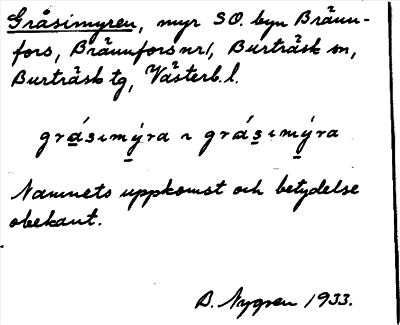 Gråsimyren, myr SO. byn Bränn-
fors, Brännfors nr 1, Burträsk sn,
Burträsk tg, Västerb. l.
grásimýra ~ grásimýra
Namnets uppkomst och betydelse
obekant.
B. Nygren 1933.